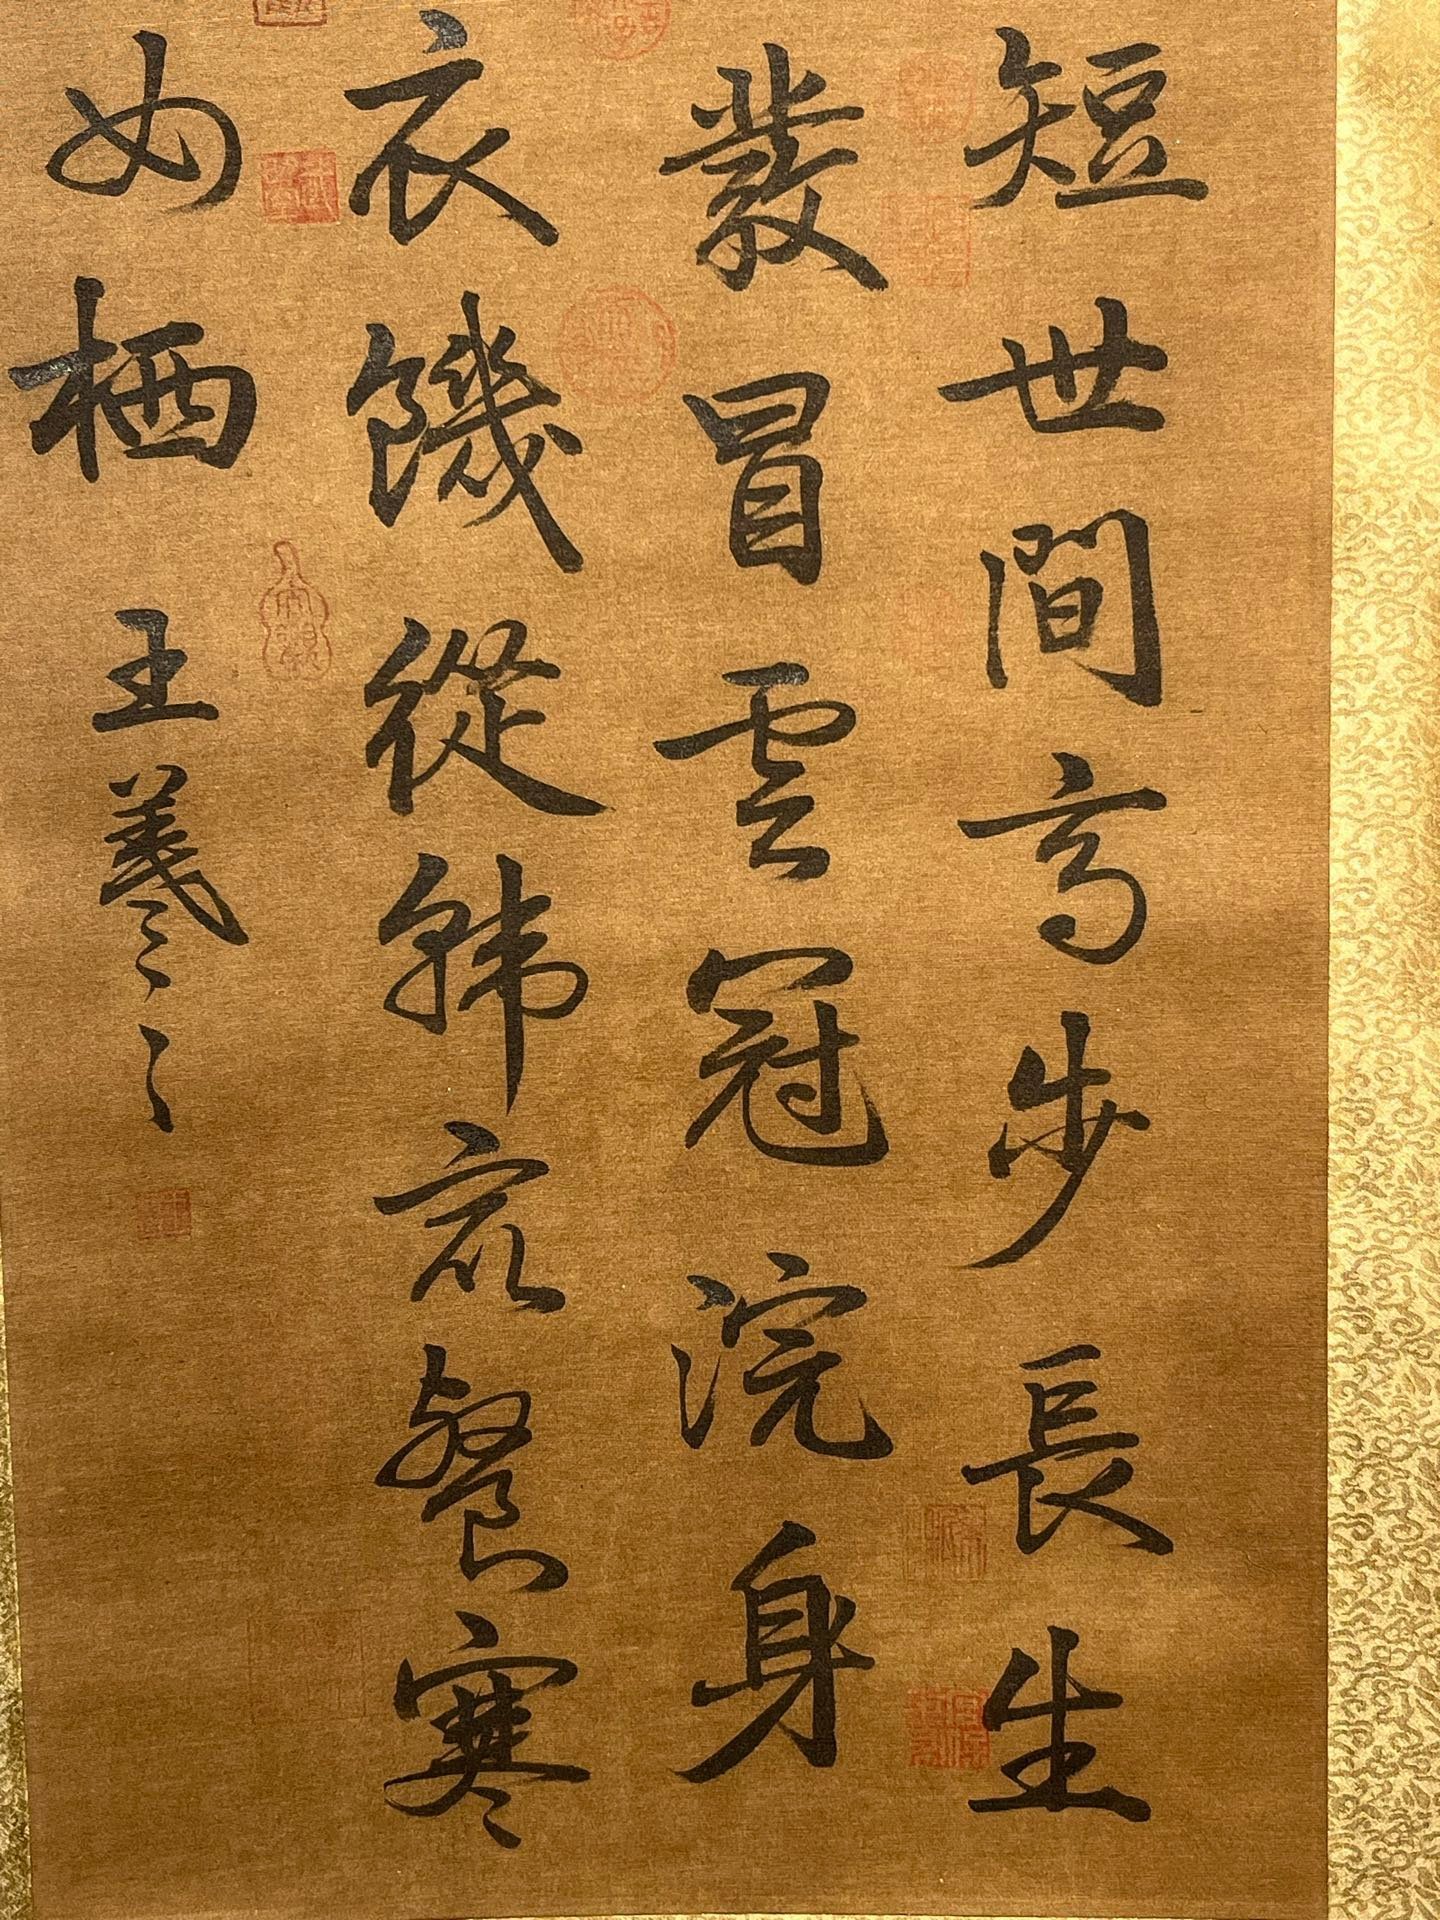 短世間高步長生
發冒雲冠浣身
衣饑從韩衆餐寒
如栖 王羲之